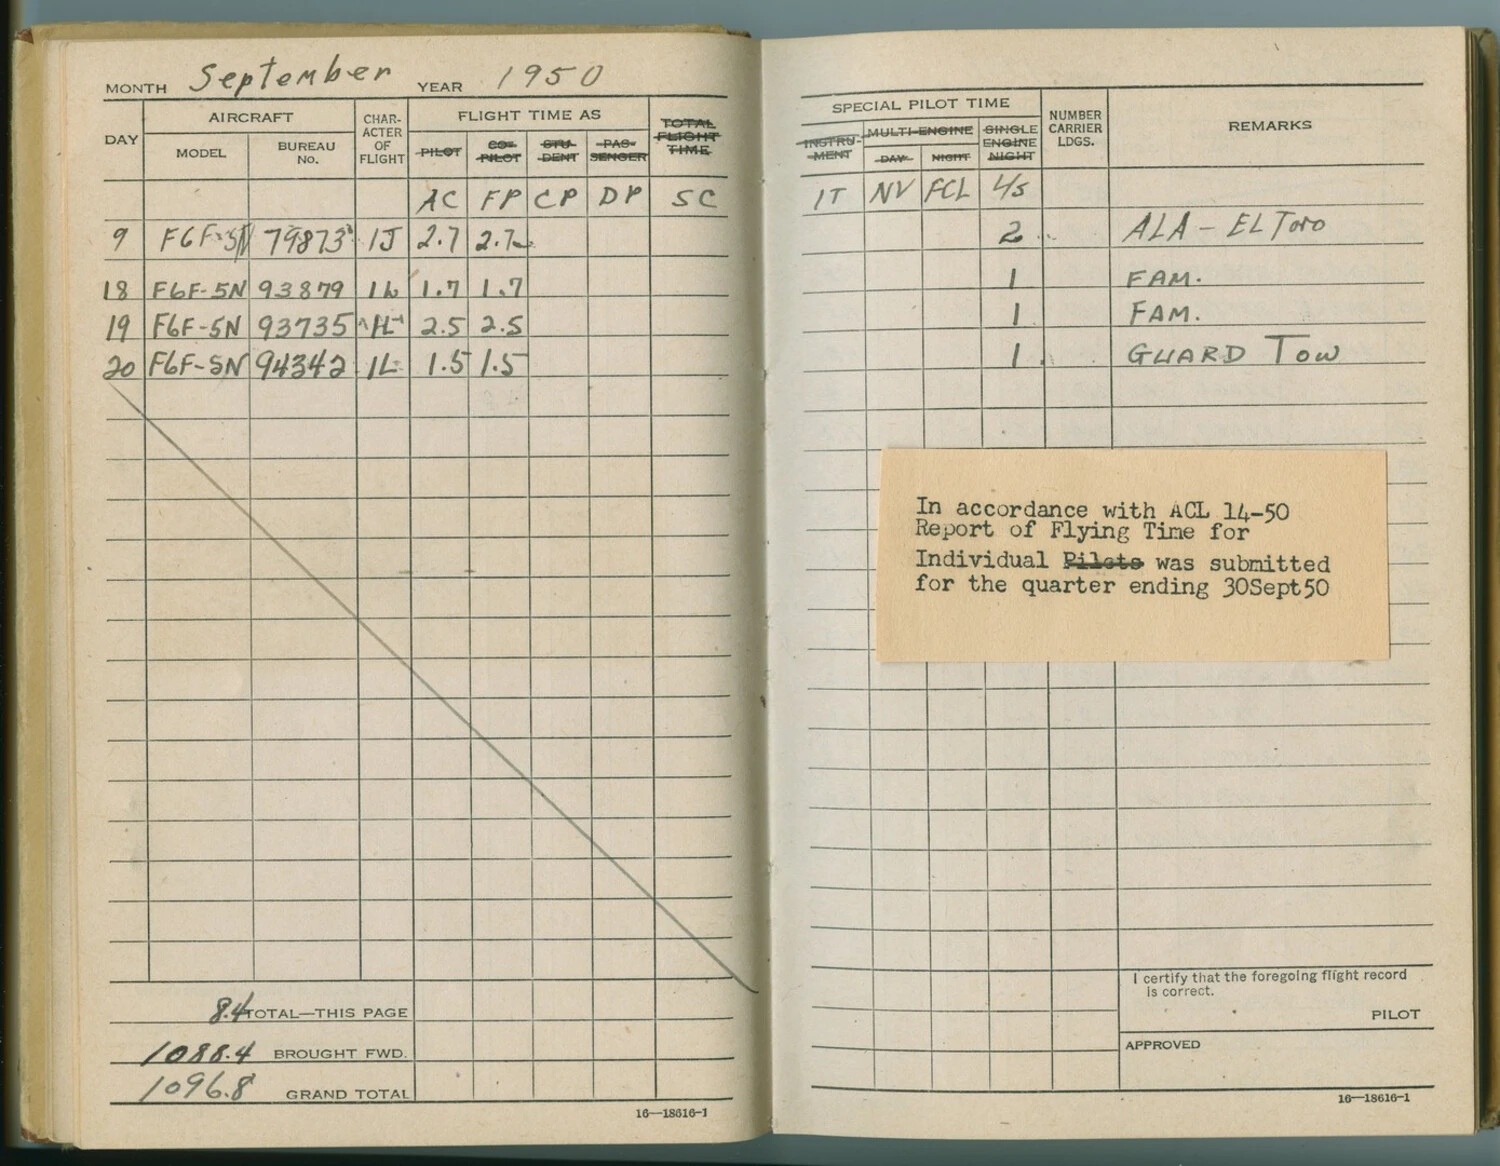 MONTH September YEAR 1950
DAY AIRCRAFT CHAR-ACTER OF FLIGHT FLIGHT TIME AS TOTAL FLIGHT TIME
MODEL BUREAU NO. PILOT CO-PILOT STU-DENT PAS-SENGER
AC FP CP DP SC
9 F6F-5N 79873 1J 2.7 2.7
18 F6F-5N 93879 1L 1.7 1.7
19 F6F-5N 93735 1L 2.5 2.5
20 F6F-5N 94342 1L 1.5 1.5
8.4 TOTAL—THIS PAGE
1088.4 BROUGHT FWD.
1096.8 GRAND TOTAL
16—18616-1
SPECIAL PILOT TIME NUMBER CARRIER LDGS. REMARKS
INSTRU-MENT MULTI-ENGINE SINGLE ENGINE NIGHT
DAY NIGHT
IT NV FCL L/S
2 ALA - EL Toro
1 FAM.
1 FAM.
1 GUARD TOW
In accordance with ACL 14-50
Report of Flying Time for
Individual Pilots was submitted
for the quarter ending 30Sept50
I certify that the foregoing flight record
is correct.
PILOT
APPROVED
16—18616-1